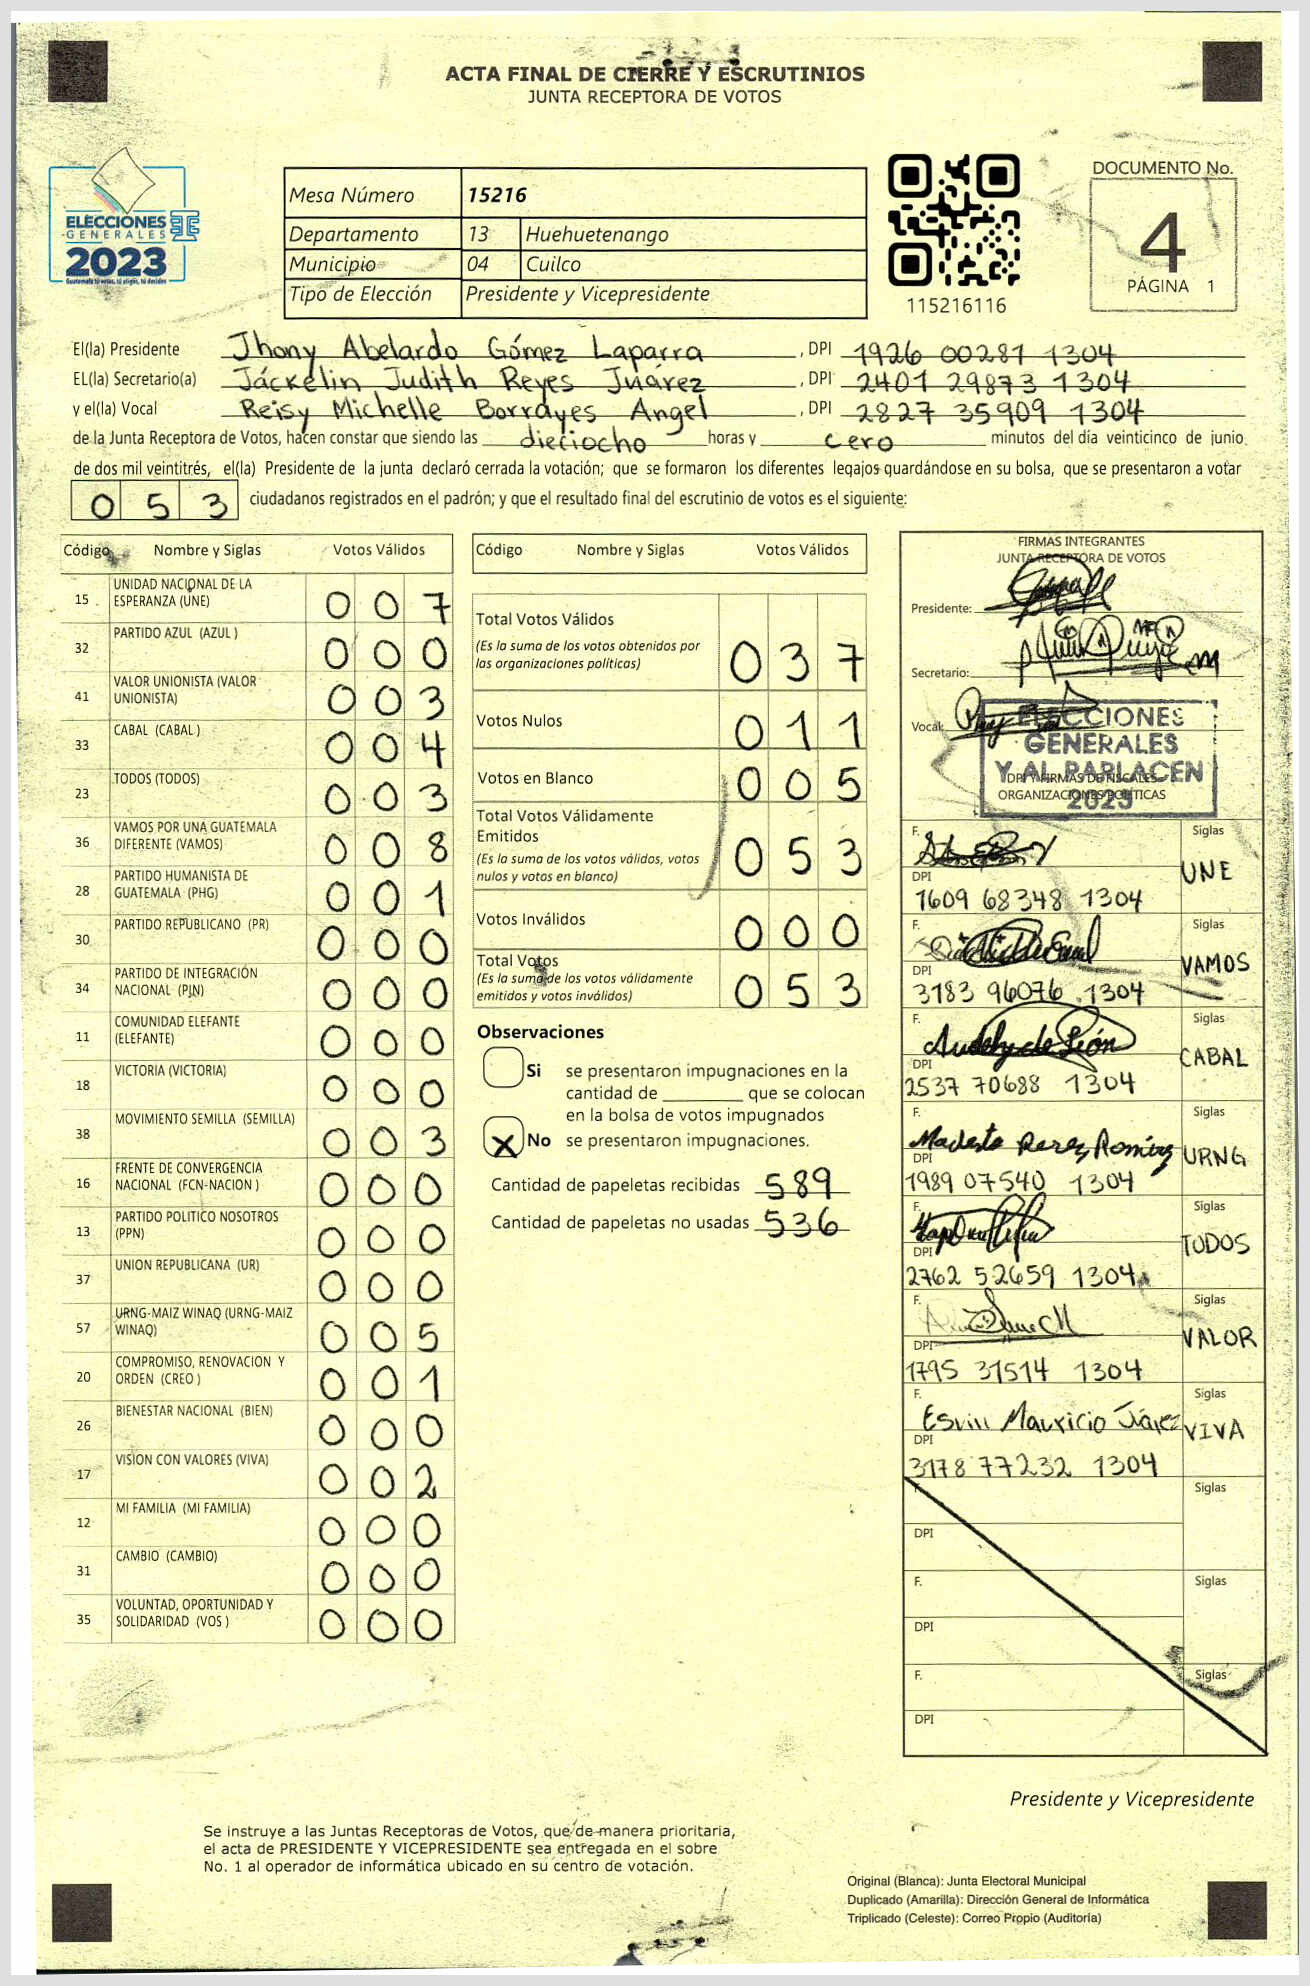 ACTA FINAL DE CIERRE Y ESCRUTINIOS
JUNTA RECEPTORA DE VOTOS
ELECCIONES
GENERALES
2023
Guatemala tú votas, tú eliges, tú decides
Mesa Número 15216
Departamento 13 Huehuetenango
Municipio 04 Cuilco
Tipo de Elección Presidente y Vicepresidente
115216116
DOCUMENTO No.
4
PÁGINA 1
El(la) Presidente Jhony Abelardo Gómez Laparra , DPI 1926 00281 1304
EL(la) Secretario(a) Jáckelin Judith Reyes Juárez , DPI 2401 29873 1304
y el(la) Vocal Reisy Michelle Borrayes Angel , DPI 2827 35909 1304
de la Junta Receptora de Votos, hacen constar que siendo las dieciocho horas y cero minutos del día veinticinco de junio
de dos mil veintitrés, el(la) Presidente de la junta declaró cerrada la votación; que se formaron los diferentes legajos guardándose en su bolsa, que se presentaron a votar
053 ciudadanos registrados en el padrón; y que el resultado final del escrutinio de votos es el siguiente:
Código Nombre y Siglas Votos Válidos
15 UNIDAD NACIONAL DE LA ESPERANZA (UNE) 007
32 PARTIDO AZUL (AZUL ) 000
41 VALOR UNIONISTA (VALOR UNIONISTA) 003
33 CABAL (CABAL ) 004
23 TODOS (TODOS) 003
36 VAMOS POR UNA GUATEMALA DIFERENTE (VAMOS) 008
28 PARTIDO HUMANISTA DE GUATEMALA (PHG) 001
30 PARTIDO REPUBLICANO (PR) 000
34 PARTIDO DE INTEGRACIÓN NACIONAL (PIN) 000
11 COMUNIDAD ELEFANTE (ELEFANTE) 000
18 VICTORIA (VICTORIA) 000
38 MOVIMIENTO SEMILLA (SEMILLA) 003
16 FRENTE DE CONVERGENCIA NACIONAL (FCN-NACION ) 000
13 PARTIDO POLITICO NOSOTROS (PPN) 000
37 UNION REPUBLICANA (UR) 000
57 URNG-MAIZ WINAQ (URNG-MAIZ WINAQ) 005
20 COMPROMISO, RENOVACION Y ORDEN (CREO ) 001
26 BIENESTAR NACIONAL (BIEN) 000
17 VISION CON VALORES (VIVA) 002
12 MI FAMILIA (MI FAMILIA) 000
31 CAMBIO (CAMBIO) 000
35 VOLUNTAD, OPORTUNIDAD Y SOLIDARIDAD (VOS ) 000
Código Nombre y Siglas Votos Válidos
Total Votos Válidos
(Es la suma de los votos obtenidos por
las organizaciones políticas) 037
Votos Nulos 011
Votos en Blanco 005
Total Votos Válidamente
Emitidos
(Es la suma de los votos válidos, votos
nulos y votos en blanco) 053
Votos Inválidos 000
Total Votos
(Es la suma de los votos válidamente
emitidos y votos inválidos) 053
Observaciones
Si se presentaron impugnaciones en la
cantidad de ________ que se colocan
en la bolsa de votos impugnados
X No se presentaron impugnaciones.
Cantidad de papeletas recibidas 589
Cantidad de papeletas no usadas 536
FIRMAS INTEGRANTES
JUNTA RECEPTORA DE VOTOS
Presidente:
Secretario:
Vocal:
ELECCIONES
GENERALES
Y AL PARLACEN
2023
DPI Y FIRMAS DE FISCALES
ORGANIZACIONES POLÍTICAS
F. Siglas
UNE
DPI
1609 68348 1304
F. Siglas
VAMOS
DPI
3183 96076 1304
F. Siglas
Audely de León CABAL
DPI
2537 70688 1304
F. Siglas
Modesto Perez Romírez URNG
DPI
1989 07540 1304
F. Siglas
TODOS
DPI
2762 52659 1304
F. Siglas
VALOR
DPI
1795 31514 1304
F. Siglas
Esvin Mauricio Juárez VIVA
DPI
3178 77232 1304
F. Siglas
DPI
F. Siglas
DPI
F. Siglas
DPI
Presidente y Vicepresidente
Se instruye a las Juntas Receptoras de Votos, que de manera prioritaria,
el acta de PRESIDENTE Y VICEPRESIDENTE sea entregada en el sobre
No. 1 al operador de informática ubicado en su centro de votación.
Original (Blanca): Junta Electoral Municipal
Duplicado (Amarilla): Dirección General de Informática
Triplicado (Celeste): Correo Propio (Auditoría)